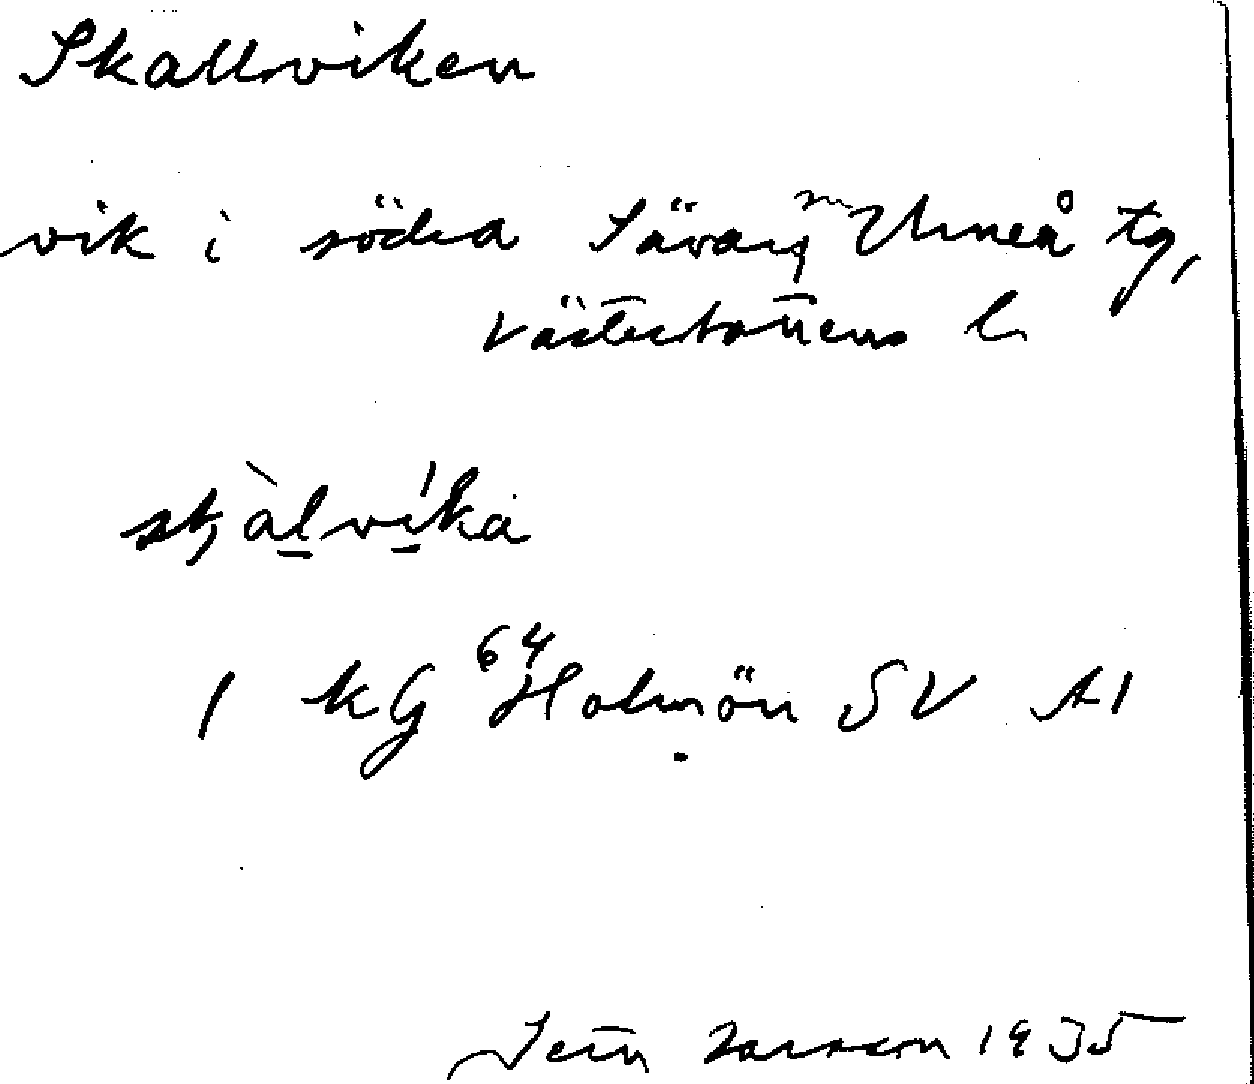 Skallviken
vik i södra Sävar sn Umeå tg,
Västerbottens l.
skàlvíka
1 kG 64 Holmön SV A1
Larsson 1935